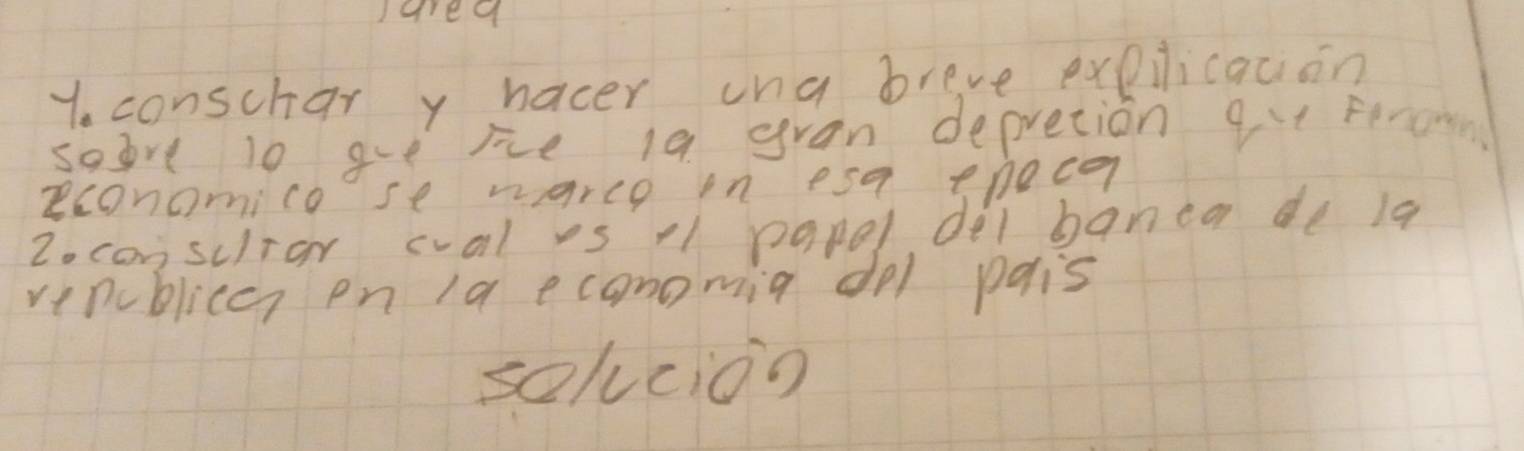 Tarea
1. consultar y hacer una breve explilicación
sobre lo que fue la gran depreción que Fenomeno
economico se marco en esa epoca
2. consultar cual es el papel del banca de la
republica en la economia del pais
solución